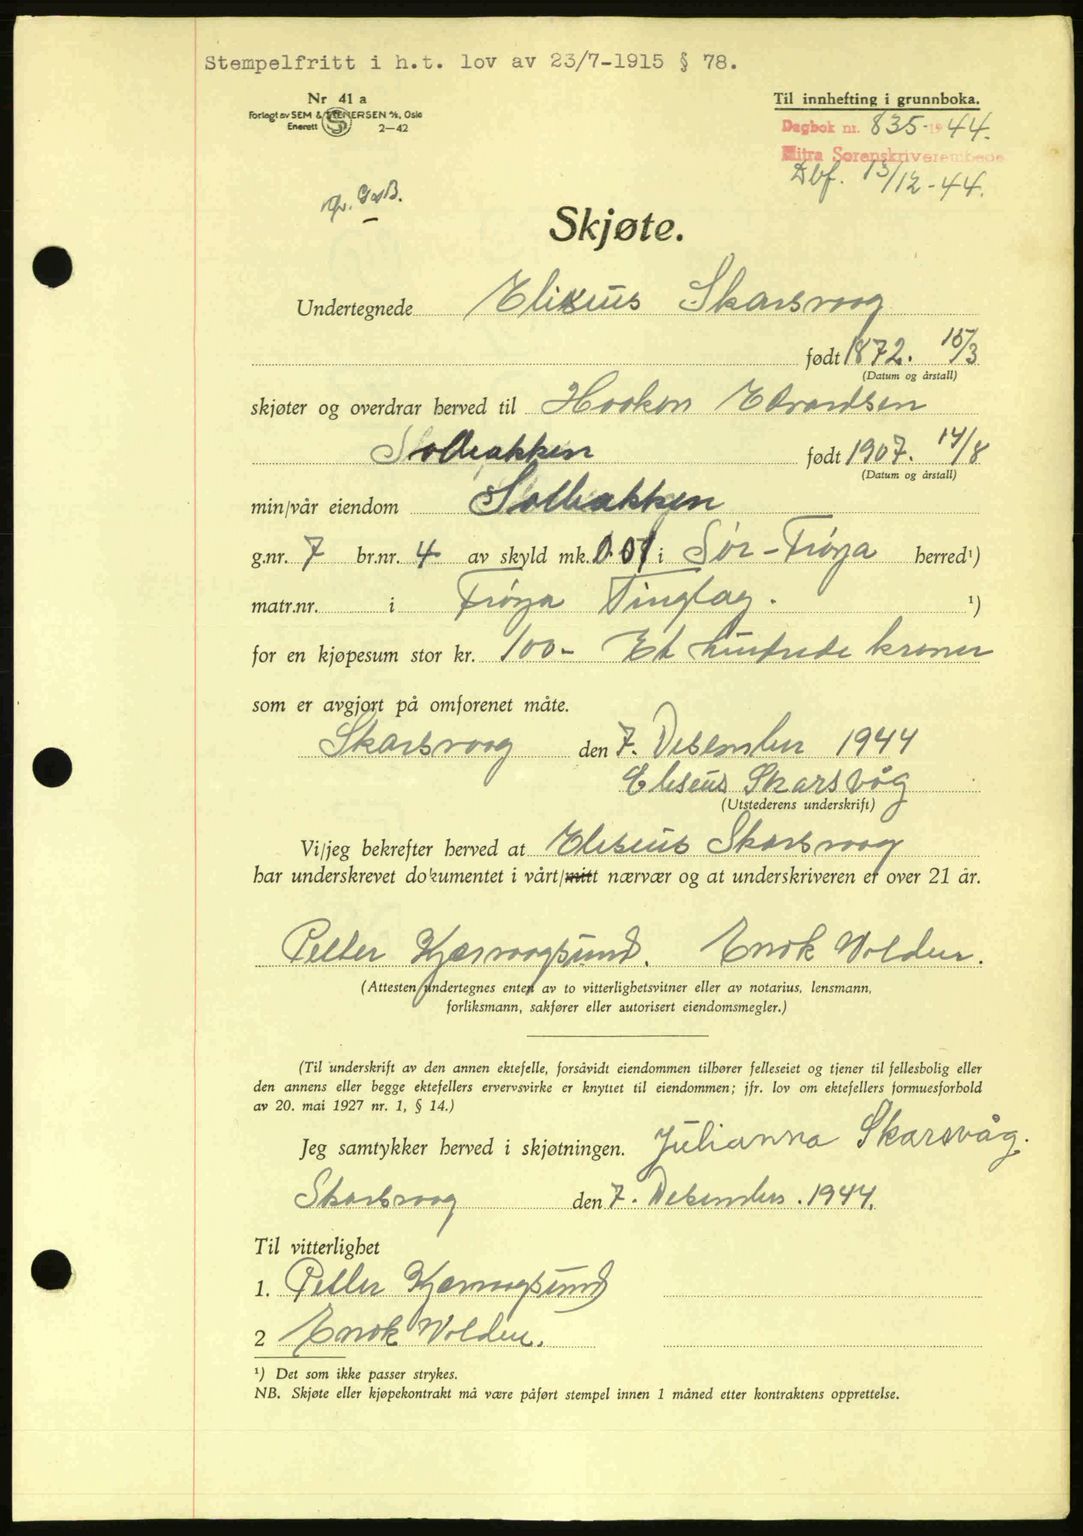 Stempelfritt i h.t. lov av 23/7-1915 § 78.
Nr 41 a
Forlagt av SEM & STENERSEN A/S, Oslo
Enerett S 2-42
Til innhefting i grunnboka.
Dagbok nr. 835-1944.
Hitra Sorenskriverembede
Dbf. 13/12-44.
Skjøte.
Undertegnede Eliseus Skarsvaag
født 1872. 15/3
(Datum og årstall)
skjøter og overdrar herved til Haakon Edvardsen
Solbakken født 1907. 14/8
(Datum og årstall)
min/vår eiendom Solbakken
g.nr. 7 br.nr. 4 av skyld mk. 0.01 i Sør-Frøya herred¹)
matr.nr. i Frøya Tinglag. ¹)
for en kjøpesum stor kr. 100- Et hundrede kroner
som er avgjort på omforenet måte.
Skarsvaag den 7. Desember 1944
Eliseus Skarsvåg
(Utstederens underskrift)
Vi/jeg bekrefter herved at Eliseus Skarsvaag
har underskrevet dokumentet i vårt/mitt nærvær og at underskriveren er over 21 år.
Petter Kjærvaagsund. Enok Volden.
(Attesten undertegnes enten av to vitterlighetsvitner eller av notarius, lensmann,
forliksmann, sakfører eller autorisert eiendomsmegler.)
(Til underskrift av den annen ektefelle, forsåvidt eiendommen tilhører felleseiet og tjener til fellesbolig eller
den annens eller begge ektefellers ervervsvirke er knyttet til eiendommen; jfr. lov om ektefellers formuesforhold
av 20. mai 1927 nr. 1, § 14.)
Jeg samtykker herved i skjøtningen. Julianna Skarsvåg.
Skarsvaag den 7. Desember. 1944.
Til vitterlighet
1. Petter Kjærvaagsund
2 Enok Volden.
¹) Det som ikke passer strykes.
NB. Skjøte eller kjøpekontrakt må være påført stempel innen 1 måned etter kontraktens opprettelse.